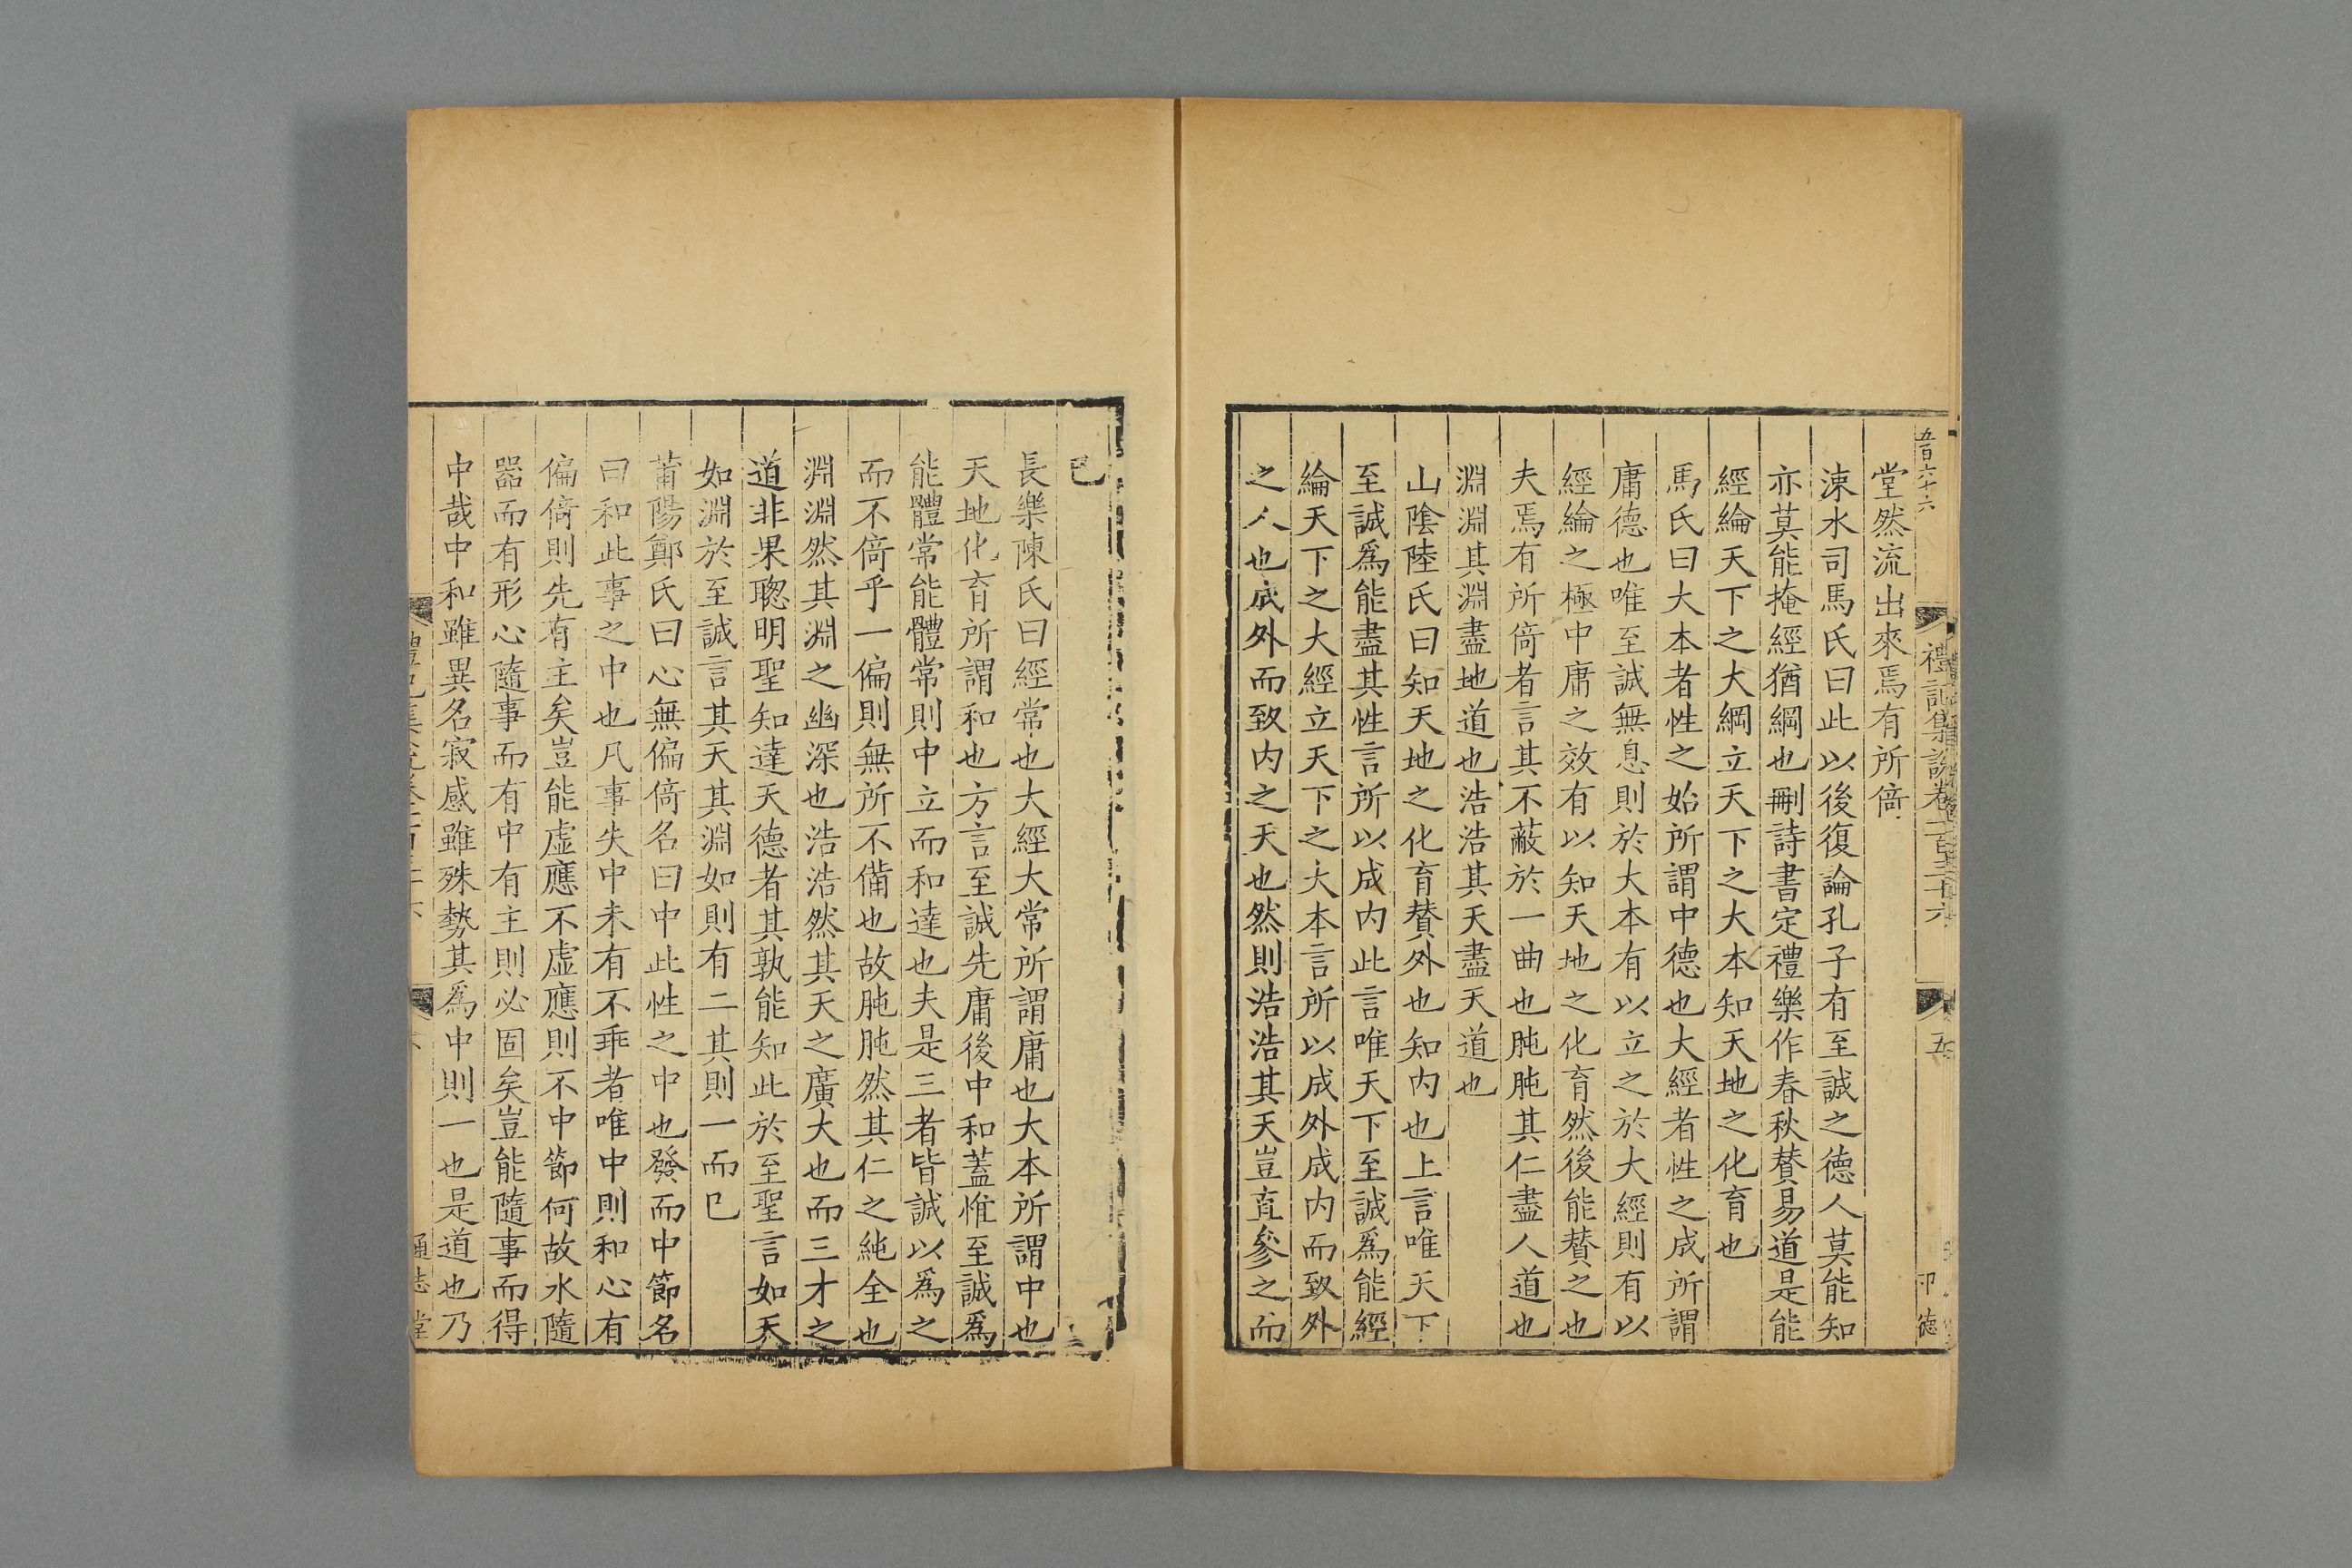 五百六十六
禮記集說卷一百三十六
五
卭德
堂然流出來焉有所倚
涑水司馬氏曰此以後復論孔子有至誠之德人莫能知
亦莫能掩經猶綱也刪詩書定禮樂作春秋賛易道是能
經綸天下之大綱立天下之大本知天地之化育也
馬氏曰大本者性之始所謂中德也大經者性之成所謂
庸德也唯至誠無息則於大本有以立之於大經則有以
經綸之極中庸之效有以知天地之化育然後能賛之也
夫焉有所倚者言其不蔽於一曲也肫肫其仁盡人道也
淵淵其淵盡地道也浩浩其天盡天道也
山陰陸氏曰知天地之化育賛外也知内也上言唯天下
至誠爲能盡其性言所以成内此言唯天下至誠爲能經
綸天下之大經立天下之大本言所以成外成内而致外
之人也成外而致内之天也然則浩浩其天豈直參之而
已
長樂陳氏曰經常也大經大常所謂庸也大本所謂中也
天地化育所謂和也方言至誠先庸後中和蓋惟至誠爲
能體常能體常則中立而和達也夫是三者皆誠以爲之
而不倚乎一偏則無所不備也故肫肫然其仁之純全也
淵淵然其淵之幽深也浩浩然其天之廣大也而三才之
道非果聦明聖知達天德者其孰能知此於至聖言如天
如淵於至誠言其天其淵如則有二其則一而已
莆陽鄭氏曰心無偏倚名曰中此性之中也發而中節名
曰和此事之中也凡事失中未有不乖者唯中則和心有
偏倚則先有主矣豈能虚應不虚應則不中節何故水隨
器而有形心隨事而有中有主則必固矣豈能隨事而得
中哉中和雖異名寂感雖殊勢其爲中則一也是道也乃
通志堂